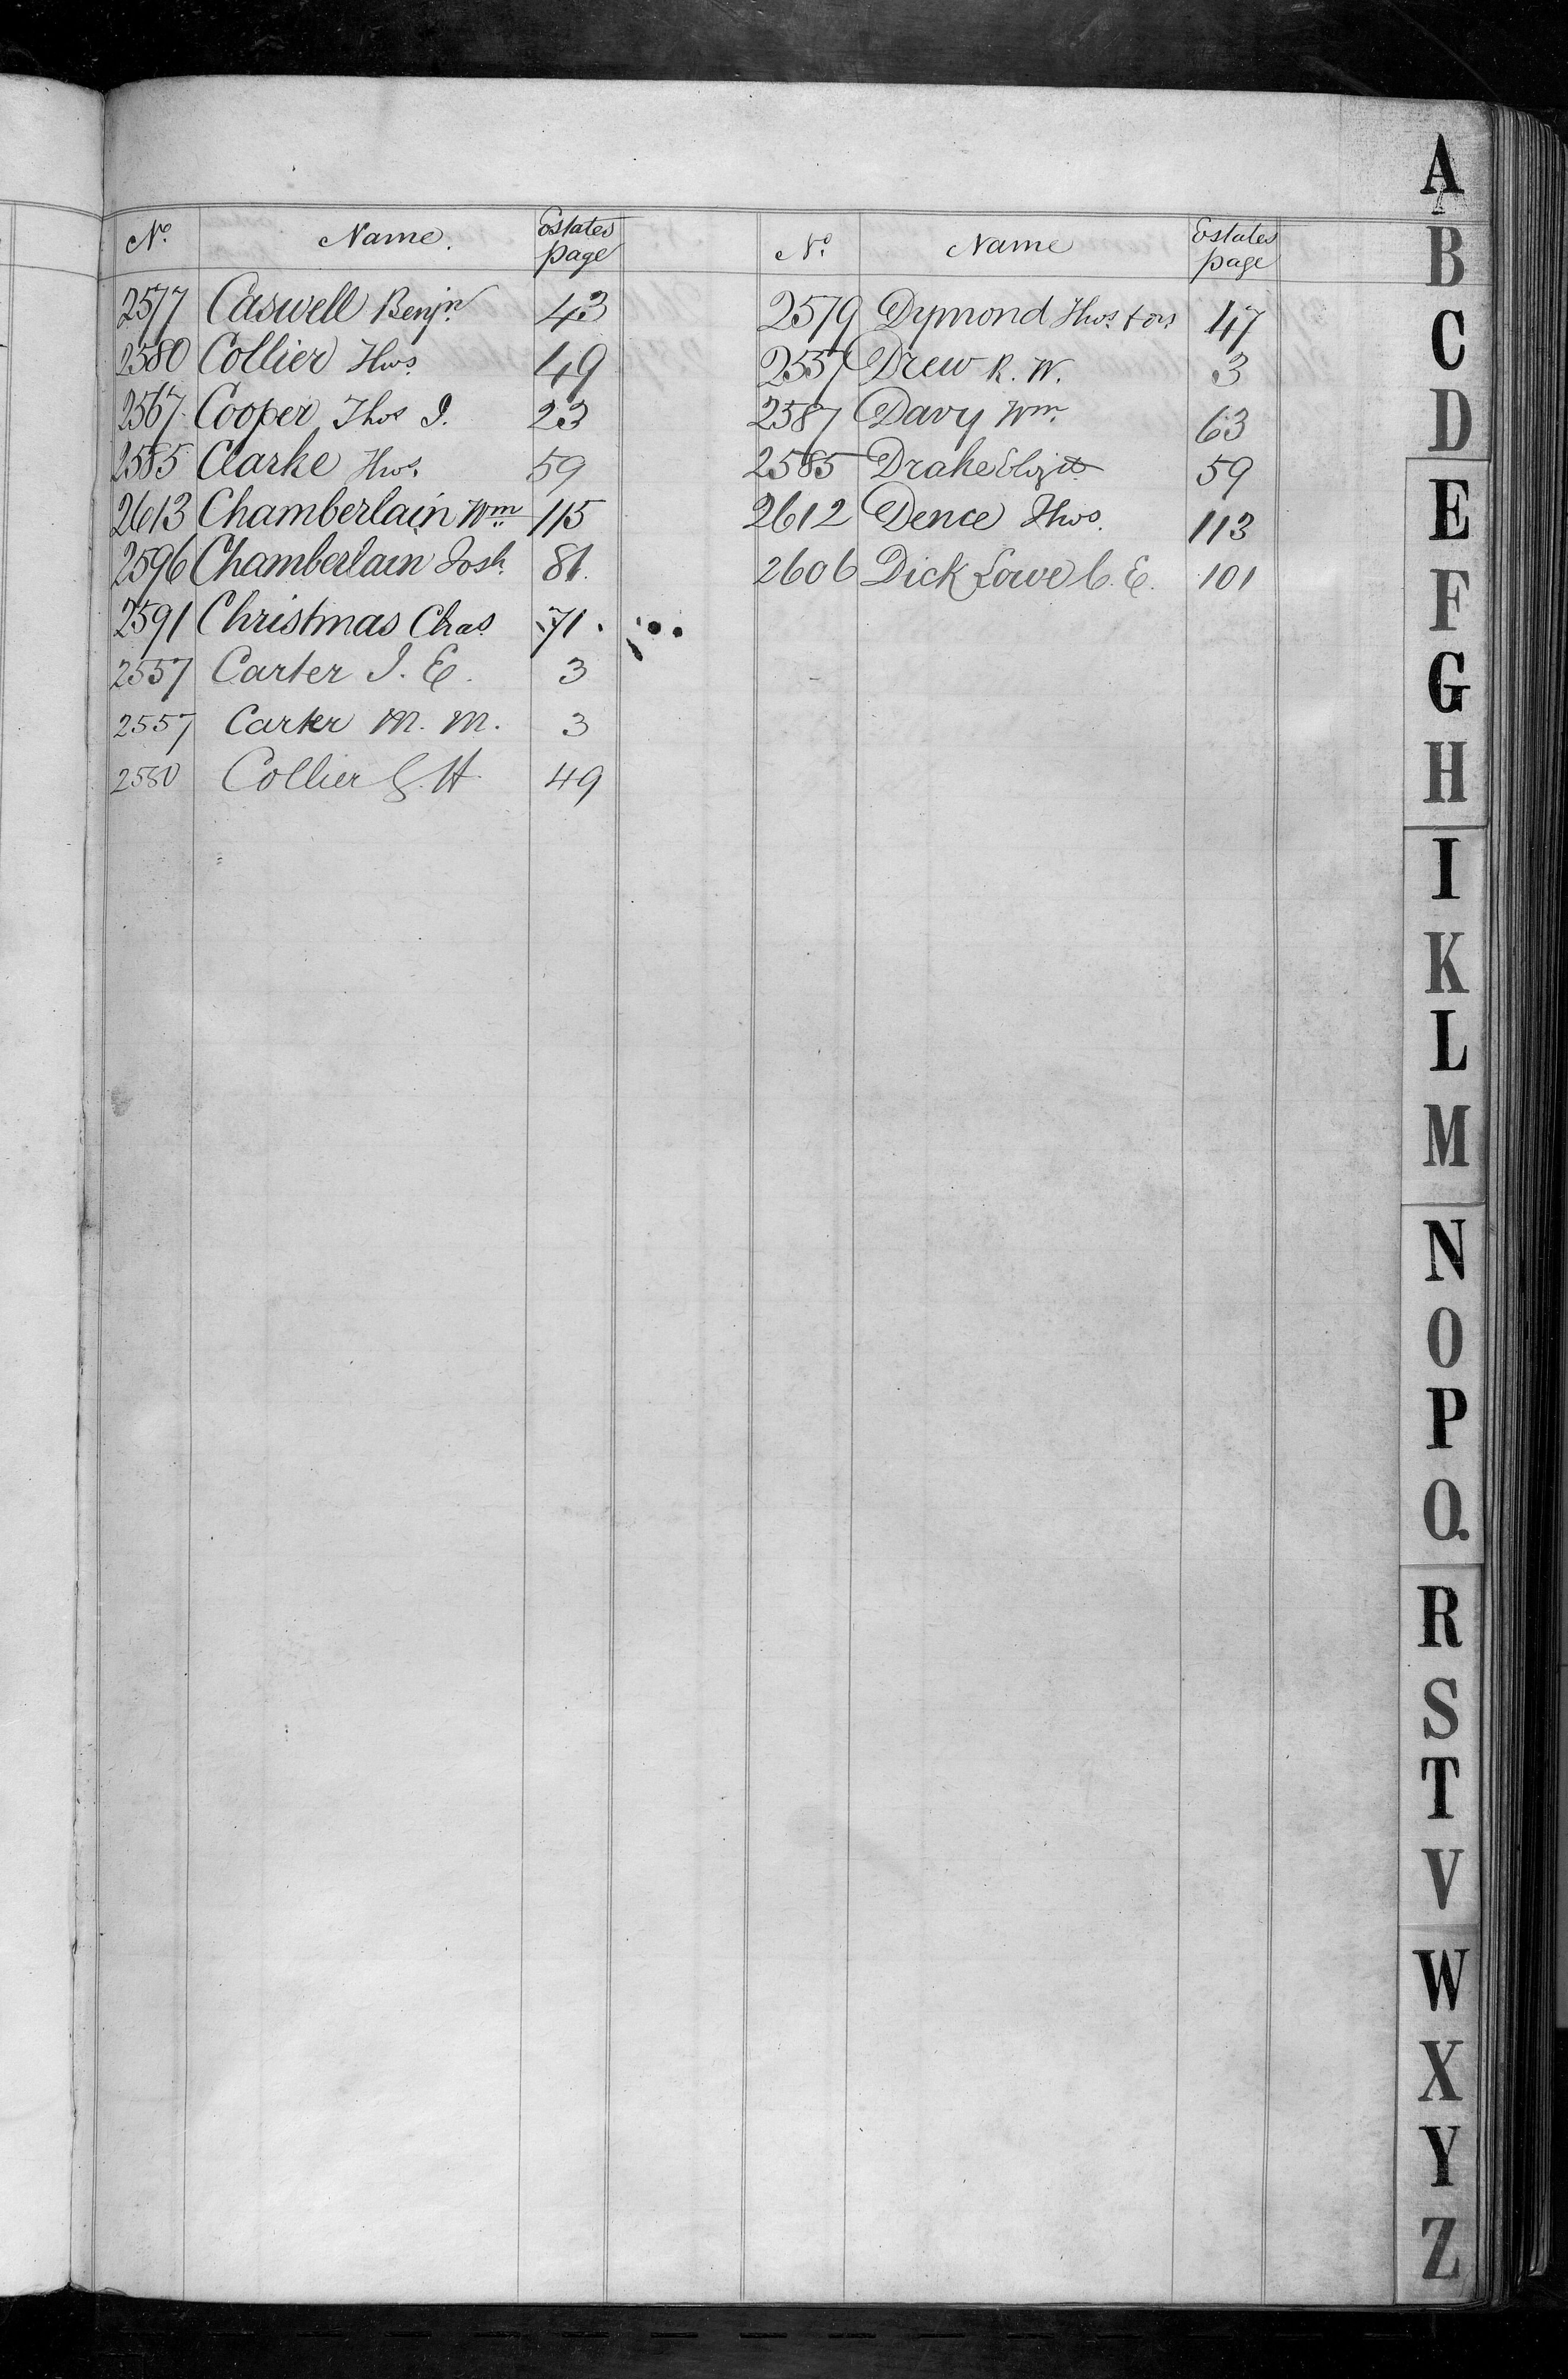 No. Name. Estates page
2577 Caswell Benjn. 43
2580 Collier Thos. 49
2567 Cooper Thos J. 23
2585 Clarke Thos. 59
2613 Chamberlain Wm 115
2596 Chamberlain Josh. 81.
2591 Christmas Chas. 71.
2557 Carter J. E. 3
2557 Carter M. M. 3
2580 Collier G. H. 49
No. Name Estates page
2579 Dymond Thos. & ors 47
2557 Drew R. W. 3
2587 Davy Wm. 63
2585 Drake Elizth 59
2612 Dence Thos. 113
2606 Dick Lowe C. E. 101
A
B
C
D
E
F
G
H
I
K
L
M
N
O
P
Q.
R
S
T
V
W
X
Y
Z